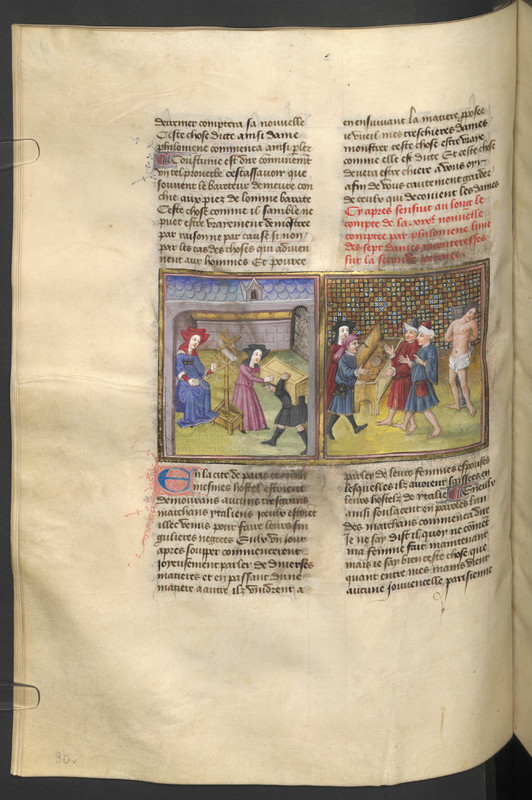 determer comptera sa nouvelle
Ceste chose dicte ainsi dame
philomene commenca ainsi pler
Coustume est dont communement
vn tel prouerbe cestassauoir que
souuent le barateur demeure con
chie aux piez de lomme barate
Ceste chose comme il samble ne
puet estre vrayement demostree
par raisonne par cause si non
par les cas des choses qui aduien
nent aux hommes Et pource
en ensuiuant la matiere posee
ie vueil mes treschieres dames
monstrer ceste chose estre vraye
comme elle est dicte Et ceste chose
deuera estre chiere a vous oyr
afin de vous cautement garder
de ceulx qui decoiuent les dames
Cy apres sensuit au long le
compte de la nouuelle
comptee par philomene lune
des sept dames racompteresses
sur la seconde iournee
En la cite de paris et en vn
mesmes hostel estoient
demourans aucuns tresgrans
marchans ytaliens yceulx estoient
illec venus pour faire leurs sin
gulieres negoces Eulx vn iour
apres soupper commencerent
ioyeusement parler de diuerses
matieres et en passant dune
matiere a autre ilz vindrent a
parler de leurs femmes espouses
lesquelles ilz auoient laissees en
leurs hostelz de ytalie Et ceulx
ainsi soulacent en paroles lun
des marchans commenca dire
Je ne say dist il quoy ne comēt
ma femme fait maintenant
mais ie say bien ceste chose que
quant entre mes mains vient
aucune iouuencelle parisienne
90v